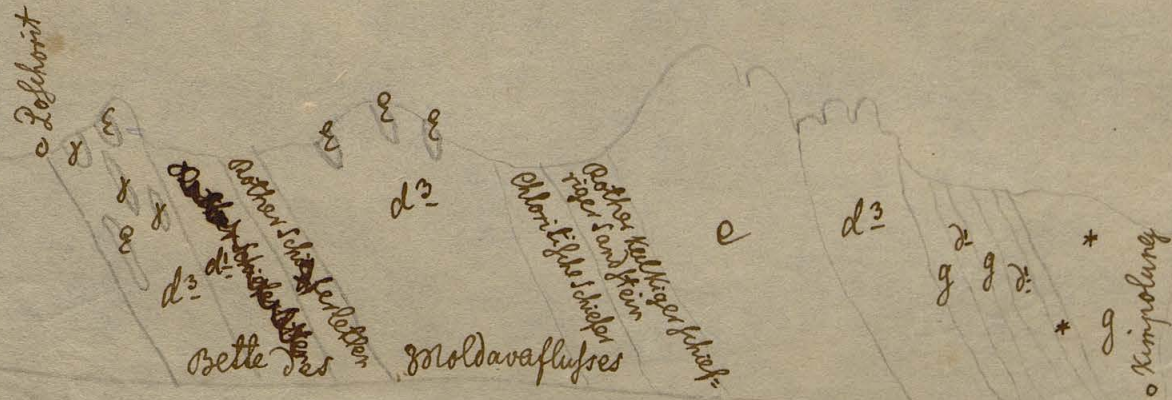 Poschorit
ε
γ
γ
γ
ε
d³
d¹
Rother Schieferletten
ε
ε
ε
d³
Chloritische Schiefer
Rother Kalkiger Schief=
riger Sandstein
e
d³
d¹
g
g
d¹
*
*
g
Kimpolung
Bette des Moldavaflusses